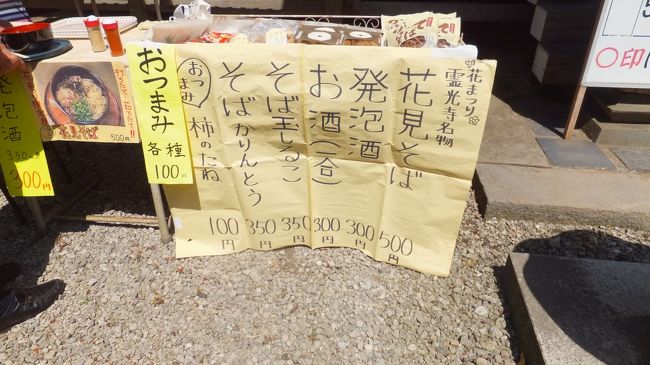 花まつり
霊光寺名物
花見そば 500円
発泡酒 300円
お酒(一合) 300円
そば玉しるこ 350円
そばかりんとう 350円
おつまみ 柿のたね 100円
おつまみ
各種
100円
花見そば
500円
発泡酒
350
300円
〇印